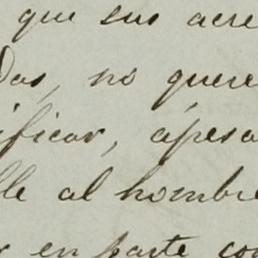 que sus acre
das, no quere
ificar, apesa
lle al hombre
r en parte con